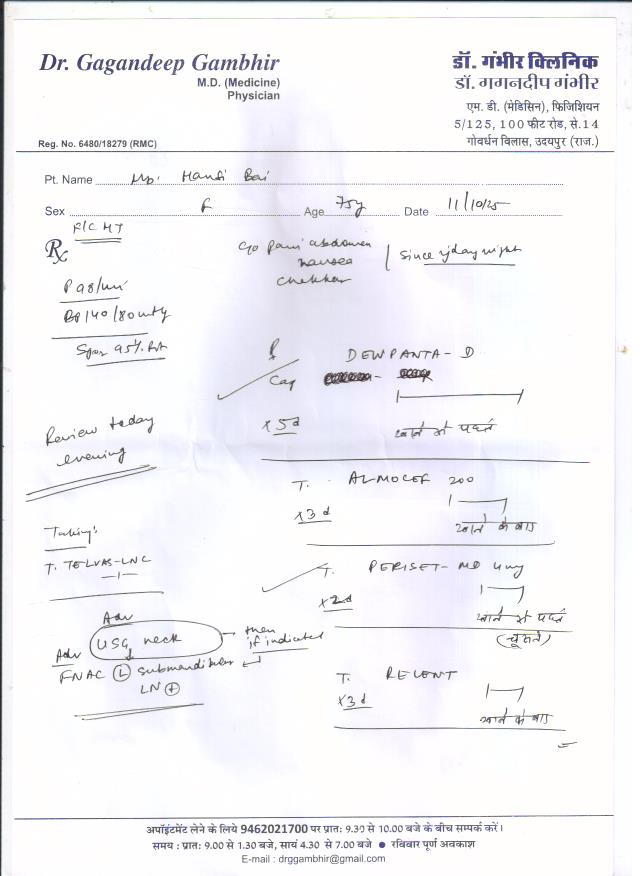 Dr. Gagandeep Gambhir
M.D. (Medicine)
Physician
Reg. No. 6480/18279 (RMC)
डॉ. गंभीर क्लिनिक
डॉ. गगनदीप गंभीर
एम. डी. (मेडिसिन), फिजिशियन
5/125, 100 फीट रोड, से.14
गोवर्धन विलास, उदयपुर (राज.)
Pt. Name Bai
Sex F Age 75y Date 11/10/25
K/C HT
Rx
c/o pain abdomen
nausea
chakkar
since yday night
P 98/min
BP 140/80
Spo2 95%
DEWPANTA-D
Cap
x 5d
खाने से पहले
Review today
evening
T. ALMOCEF 200
x3d
खाने के बाद
Taking:
T. TELVAS-LNC
T. PERISET-MD 4mg
x2d
खाने से पहले
(चूसना)
Adv
USG neck then
if indicated
Adv
FNAC L submandibular
LN +
T. RELENT
x3d
खाने के बाद
अपॉइंटमेंट लेने के लिये 9462021700 पर प्रातः 9.30 से 10.00 बजे के बीच सम्पर्क करें।
समय : प्रातः 9.00 से 1.30 बजे, सायं 4.30 से 7.00 बजे ● रविवार पूर्ण अवकाश
E-mail : drggambhir@gmail.com